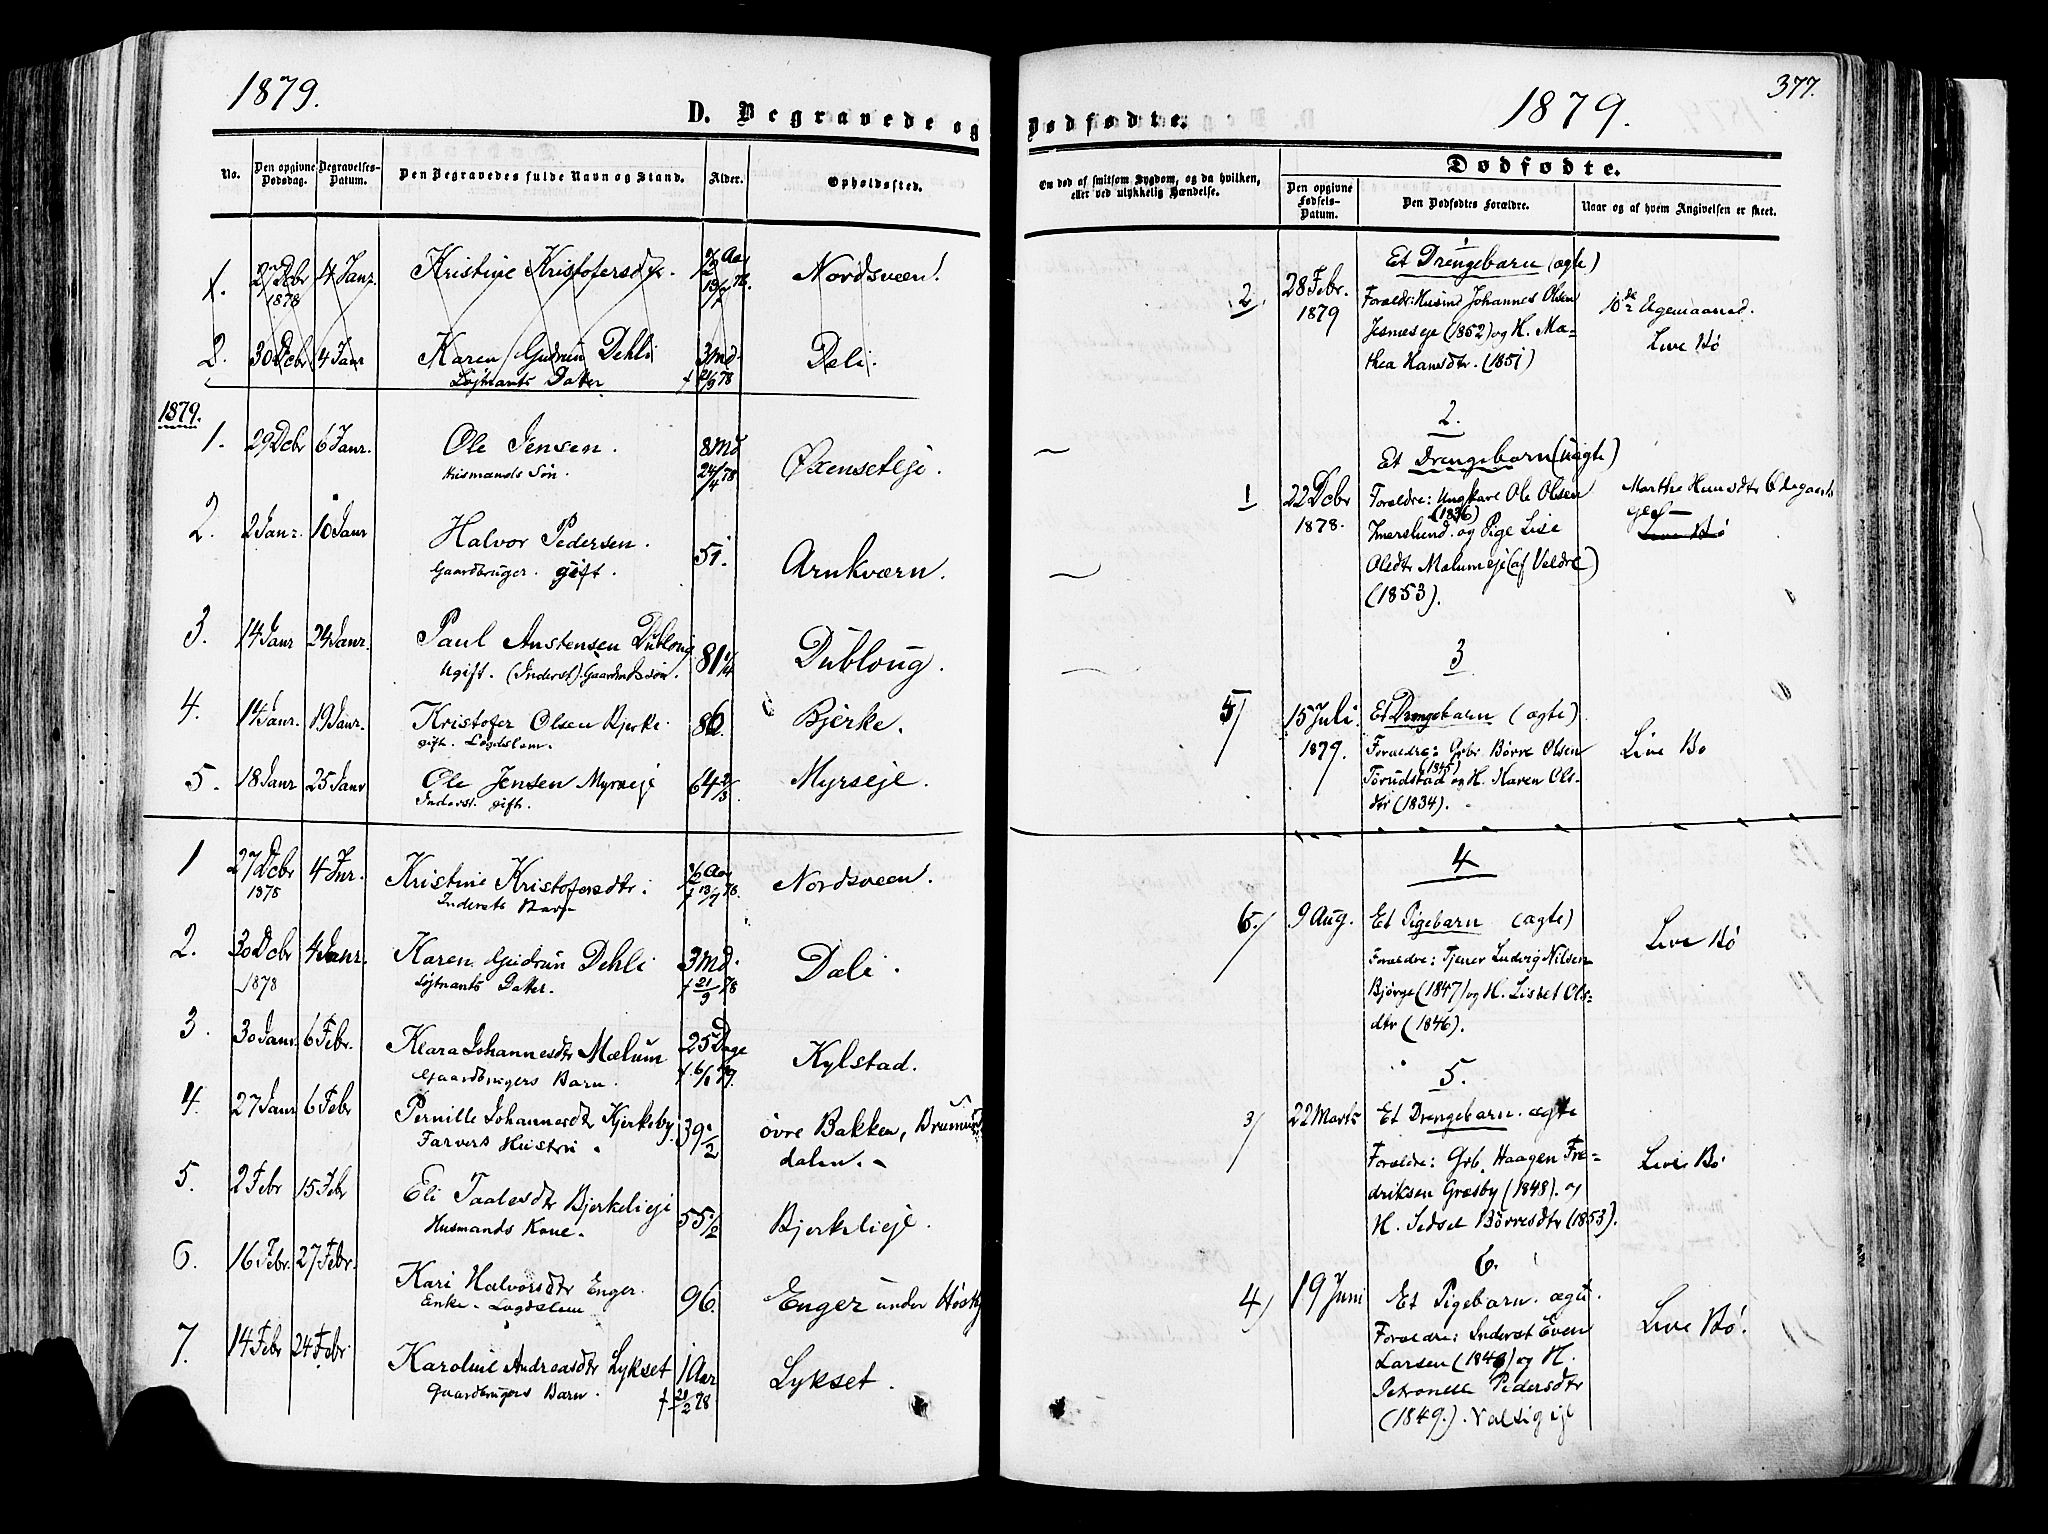 1879.
D. Begravede og
No.
Den opgivne Dødsdag.
Begravelses-Datum.
Den Begravedes fulde Navn og Stand.
Alder.
Opholdssted.
1. 27 Dcbr 1878 4 Janr. Kristine Kristofersdtr. Nordsveen.
2. 30 Dcbr 4 Janr Karen Gudrun Dehli 3 Md. Dæli.
Løjtnants Datter f 21/9 78
1879.
1. 29 Dcbr 6 Janr. Ole Jensen. 8 Md Øxenseteje.
Husmands Søn. 24/4 78
2. 2 Janr. 10 Janr Halvor Pedersen. 51. Arnkværn.
Gaardbruger. gift.
3. 14 Janr 24 Janr. Paul Austensen Dublong 81 1/4 Dublong.
Ugift. (Inderst). Gaardmds søn.
4. 14 Janr. 19 Janr. Kristofer Olsen Bjerke. 86. Bjerke.
gift. Lægdslem.
5. 18 Janr 25 Janr Ole Jensen Myrseje 64 2/3. Myrseje.
Inderst. gift.
1 27 Dcbr 1878 4 Jnr. Kristine Kristofersdtr. Nordsveen.
Indersts Barn
2. 30 Dcbr 1878 4 Janr. Karen Gudrun Dehli 3 Md. Dæli.
Løjtnants Datter. f 21/9 78
3. 30 Janr 6 Febr. Klara Johannesdtr Mælum 25 Dage Kylstad.
Gaardbrugers Barn. f. 6/1 79.
4. 27 Janr 6 Febr Pernille Johannesdtr Kjerkeby. 39 1/2 øvre Bakken, Brumund-
Farvers Hustru. dalen.
5. 2 Febr 15 Feb Eli Taalesdtr Bjerkelieje 55 1/2 Bjerkelieje.
Husmands Kone.
6. 16 Febr. 27 Febr. Kari Halvorsdtr Enger. 96. Enger under
Enke. Lægdslem
7. 14 Febr 24 Febr Karoline Andreasdtr Lykset 1 Aar Lykset.
Gaardbrugers Barn. f 21/2 78
377.
Dødfødte.
1879.
En død af smitsom Sygdom, og da hvilken, eller ved ulykkelig Hændelse.
Dødfødte.
Den opgivne Fødsels-Datum.
Den Dødfødtes Forældre.
Naar og af hvem Angivelsen er skeet.
1
2/ 28 Febr. 1879 Et Drengebarn (ægte)
Forældr: Husmd Johannes Olsen
Jesnæseje (1852) og H. Ma-
thea Hansdtr. (1851)
10de Svgemaaned.
Live Bø
2.
1 22 Dcbr 1878. Et Drengebarn (uægte)
Forældre: Ungkarl Ole Olsen
(1836)
Imerslund. og Pige Lise
Olsdtr Mælumeje (af Veldre)
(1853).
Marthe Hansdtr Ødegaards
Live Bø
3
5/ 15 Juli 1879. Et Drengebarn (ægte)
Forældre: Grbr. Børre Olsen
(1845)
Torudstad og H. Karen Ols-
dtr (1834).
Live Bø
4
6./ 9 Aug. Et Pigebarn (ægte)
Forældre: Tjener Ludvig Nilsen
Bjørge (1847) og H. Lisbet Ols-
dtr (1846).
Live Bø
5.
3/ 22 Marts Et Drengebarn. ægte
Forældre: Grb. Haagen Fre-
driksen Græsby (1848). og
H. Sidsel Børresdtr (1853).
Live Bø
6.
4/ 19 Juni Et Pigebarn. ægte.
Forældre: Inderst Even
Larsen og H.
Petronelle Pedersdtr
(1849.).
Live Bø.